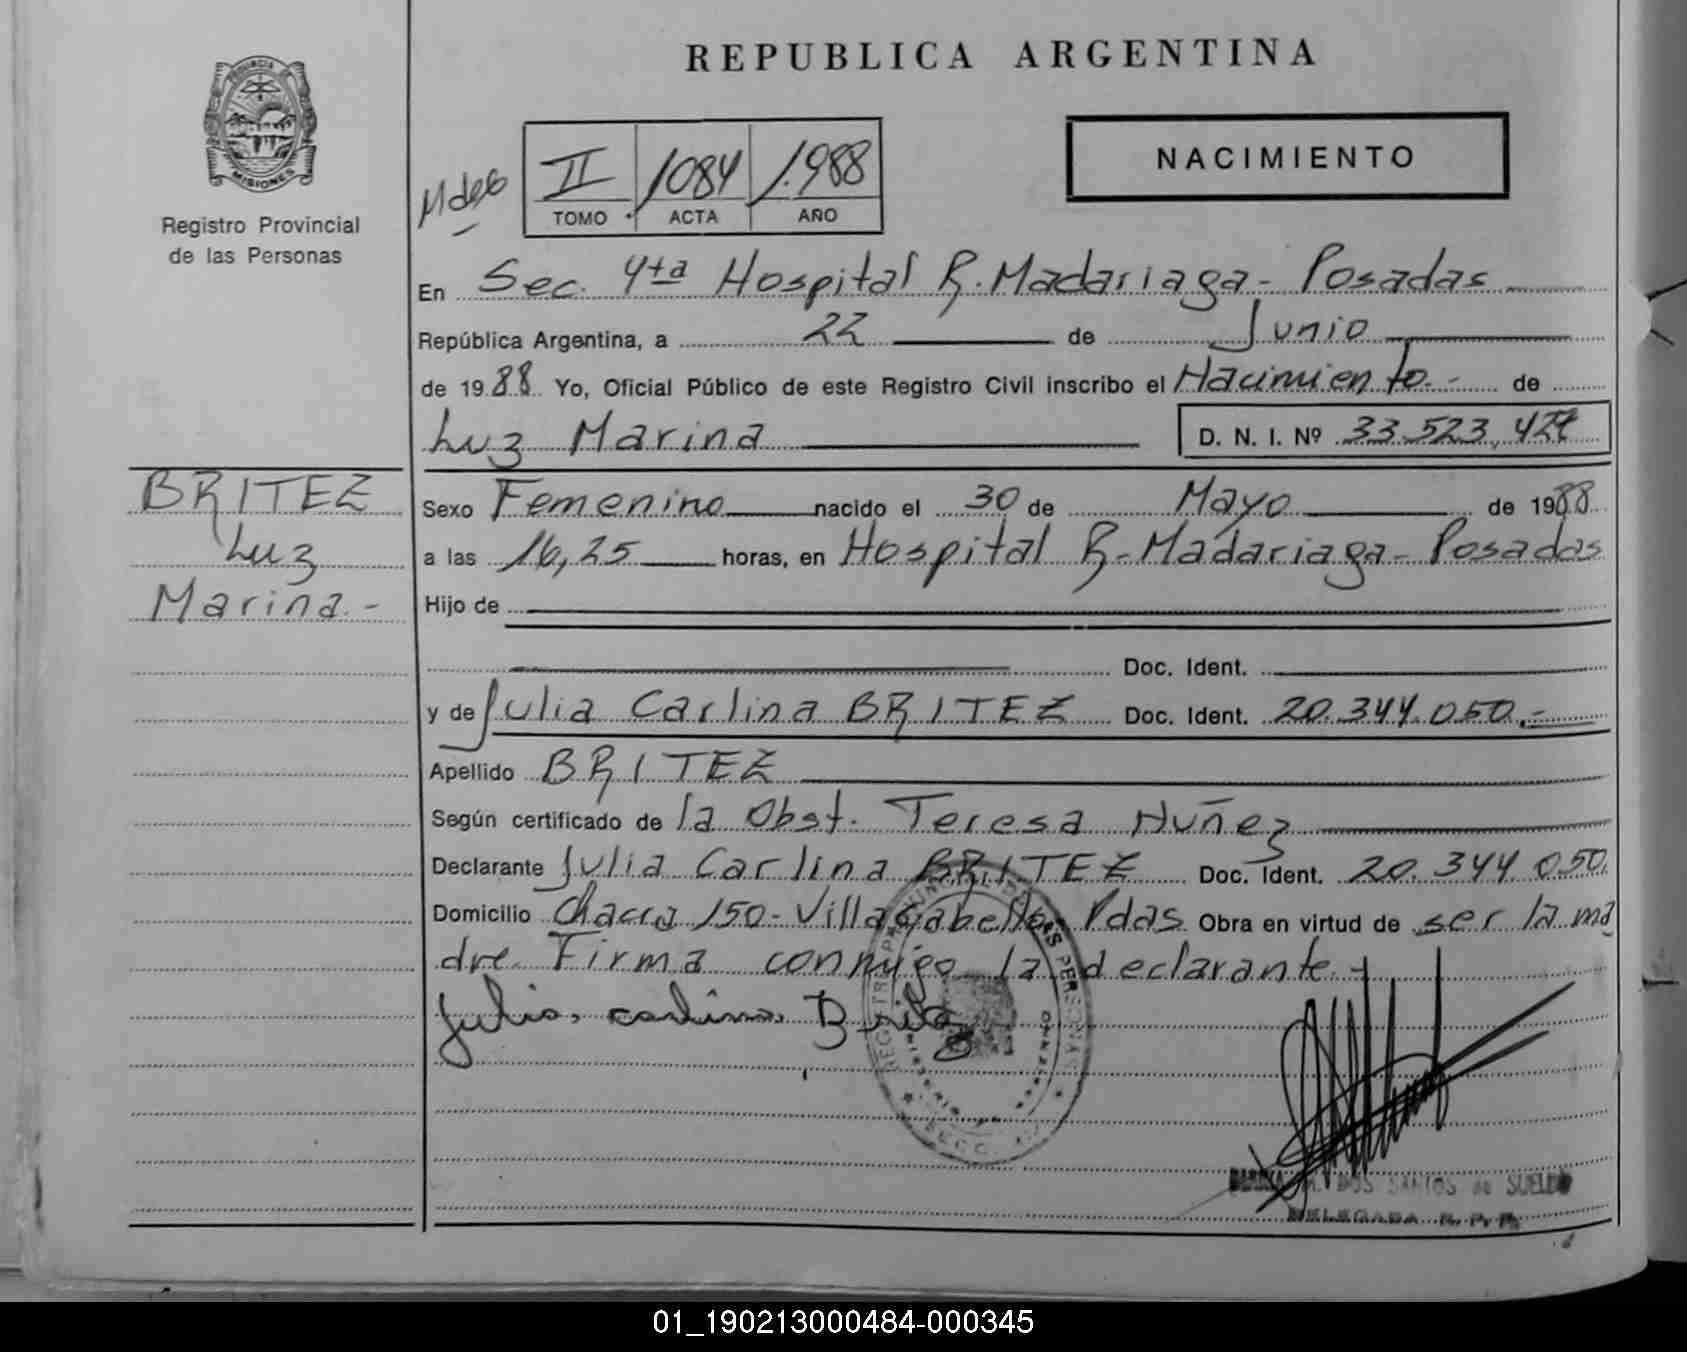 REPUBLICA ARGENTINA
PROVINCIA DE
MISIONES
Registro Provincial
de las Personas
NACIMIENTO
II 1084 1.988
TOMO ACTA AÑO
En Sec. 4ta Hospital R. Madariaga - Posadas
República Argentina, a 22 de Junio
de 1988 Yo, Oficial Público de este Registro Civil inscribo el Nacimiento.- de
Luz Marina D. N. I. Nº 33.523.427
BRITEZ
Luz
Marina.-
Sexo Femenino nacido el 30 de Mayo de 1988
a las 16,25 horas, en Hospital R. Madariaga - Posadas
Hijo de
Doc. Ident.
y de Julia Carlina BRITEZ Doc. Ident. 20.344.050.-
Apellido BRITEZ
Según certificado de la Obst. Teresa Nuñez
Declarante Julia Carlina BRITEZ Doc. Ident. 20.344.050.
Domicilio Chacra 150 - Villa Cabello - Pdas Obra en virtud de ser la ma
dre. Firma conmigo la declarante.-
Julia carlina Britez
DOS SANTOS de SUELDO
DELEGADA R. P. P.
01_190213000484-000345